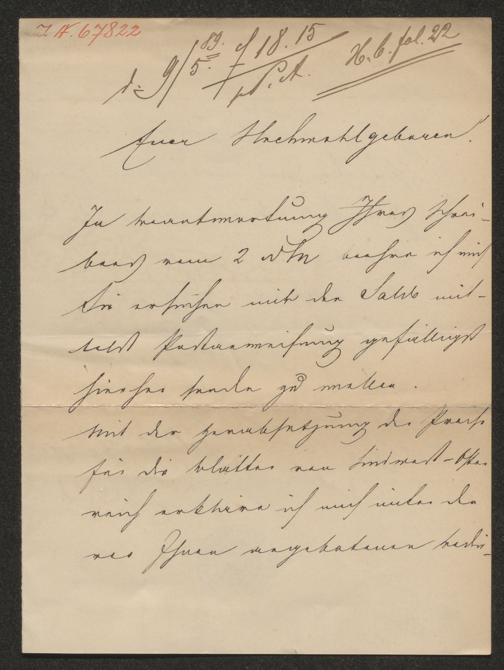 I N. 67822
d: 9/5. 89. f 18.15
pt. A.
H. b. fol. 22
Euer Hochwohlgeboren!
In beantwortung Ihres schrei-
bens vom 2 dM beehre ich mich
Sie ersuchen mir den Saldo mit-
telst Postanweisung gefälligst
hierher senden zu wollen.
Mit der herabsetzung des Preises
für die blätter von Südwest-Öster-
reich erkläre ich mich unter den
von Ihnen angebotenen bedin-